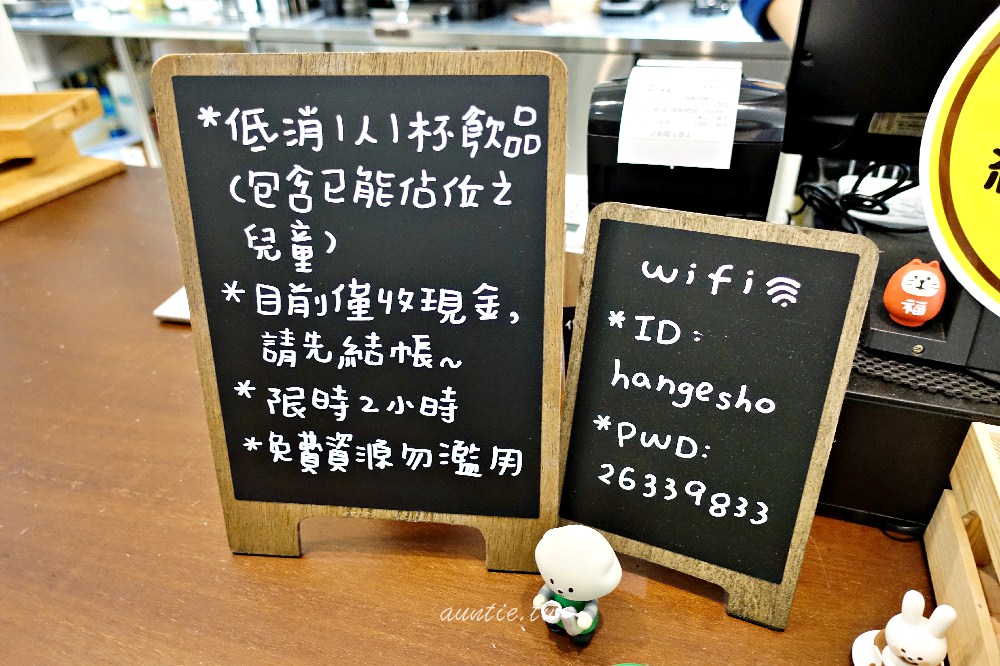 *低消1人1杯飲品
(包含已能佔位之
兒童)
*目前僅收現金,
請先結帳~
*限時2小時
*免費資源勿濫用
wifi
*ID:
hangesho
*PWD:
26339833
福